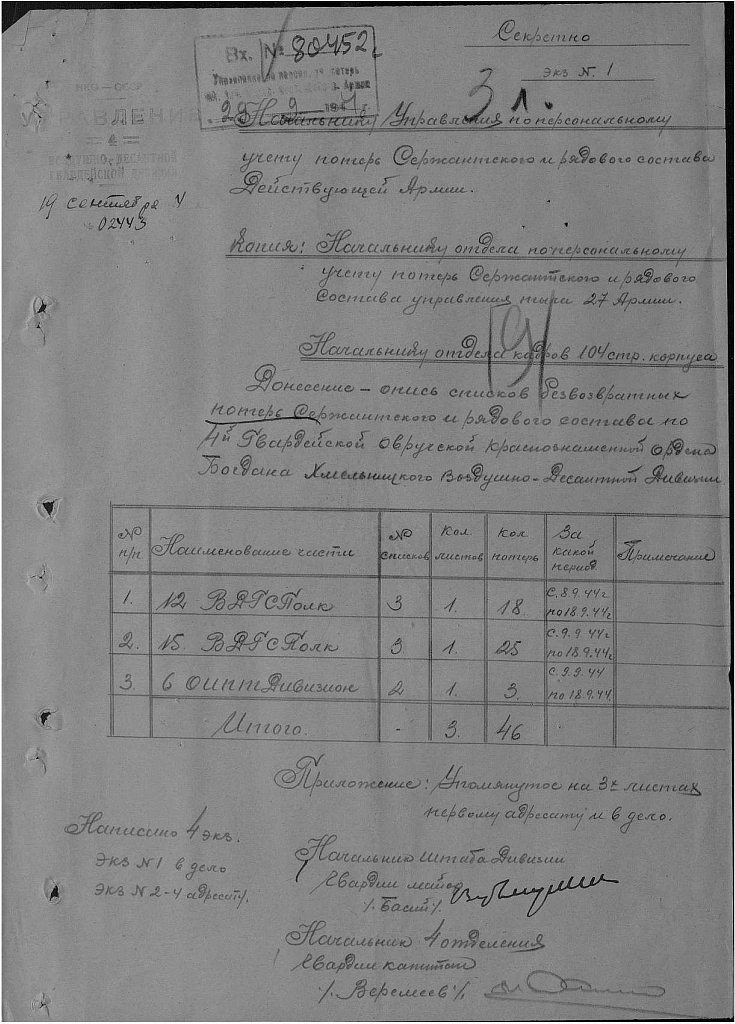 Секретно
экз № 1
Вх. № 80452
3 л.
НКО - СССР
УПРАВЛЕНИЕ
4
ВОЗДУШНО-ДЕСАНТНОЙ
ГВАРДЕЙСКОЙ ДИВИЗИИ
19 сентября 4
№ 02443
Начальнику Управления по персональному
учету потерь Сержантского и рядового состава
Действующей Армии.
Копия: Начальнику отдела по персональному
учету потерь Сержантского и рядового
Состава управления тыла 27 Армии.
Начальнику отдела кадров 104 стр. корпуса
Донесение - опись списков безвозвратных
потерь Сержантского и рядового состава по
4й Гвардейской Овручской Краснознаменной Ордена
Богдана Хмельницкого Воздушно-Десантной Дивизии
№ п/п | Наименование части | № списков | Кол. листов | Кол. потерь | За какой период | Примечание
1. | 12 ВДГСПолк | 3 | 1. | 18. | С. 8.9.44г по 18.9.44г
2. | 15. ВДГСПолк | 3. | 1. | 25 | С. 9.9.44г по 18.9.44г
3. | 6 ОИПТ Дивизион | 2 | 1. | 3. | С. 9.9.44 по 18.9.44.
Итого. | - | 3. | 46 | -
Приложение: Упомянутое на 3х листах
первому адресату и в дело.
Написано 4 экз.
экз №1 в дело
экз №2-4 адресату.
Начальник штаба Дивизии
Гвардии майор
/. Басит /.
Начальник 4 отделения
Гвардии капитан
/. Веремеев /.